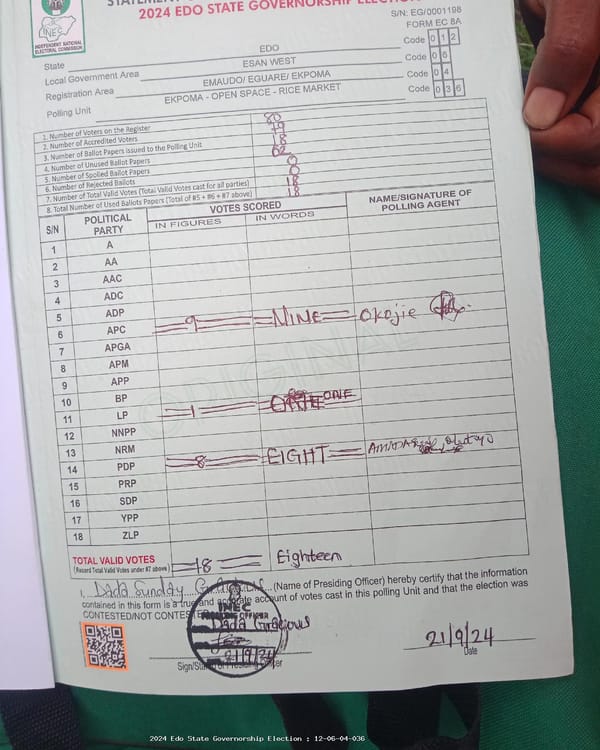 2024 EDO STATE GOVERNORSHIP ELECTION
INEC
INDEPENDENT NATIONAL
ELECTORAL COMMISSION
S/N: EG/0001198
FORM EC 8A
State EDO Code 0 1 2
Local Government Area ESAN WEST Code 0 6
Registration Area EMAUDO/ EGUARE/ EKPOMA Code 0 4
Polling Unit EKPOMA - OPEN SPACE - RICE MARKET Code 0 3 6
1. Number of Voters on the Register 80
2. Number of Accredited Voters
3. Number of Ballot Papers Issued to the Polling Unit
4. Number of Unused Ballot Papers 62
5. Number of Spoiled Ballot Papers 0
6. Number of Rejected Ballots 0
7. Number of Total Valid Votes (Total Valid Votes cast for all parties) 18
8. Total Number of Used Ballots Papers (Total of #5 + #6 + #7 above) 18
S/N POLITICAL PARTY VOTES SCORED NAME/SIGNATURE OF POLLING AGENT
IN FIGURES IN WORDS
1 A
2 AA
3 AAC
4 ADC
5 ADP
6 APC 9 NINE Okojie
7 APGA
8 APM
9 APP
10 BP
11 LP 1 ONE
12 NNPP
13 NRM
14 PDP 8 EIGHT
15 PRP
16 SDP
17 YPP
18 ZLP
TOTAL VALID VOTES 18 Eighteen
(Record Total Valid Votes under #7 above)
I, Dada Sunday (Name of Presiding Officer) hereby certify that the information
contained in this form is a true and accurate account of votes cast in this polling Unit and that the election was
CONTESTED/NOT CONTESTED
INEC
Dada Gracious
21/9/24
21/9/24
Date
2024 Edo State Governorship Election : 12-06-04-036